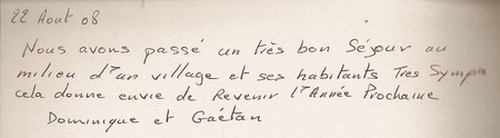 22 Aout 08
Nous avons passé un très bon Séjour au
milieu d'un village et ses habitants Tres Sympa
cela donne envie de Revenir l'Année Prochaine
Dominique et Gaétan